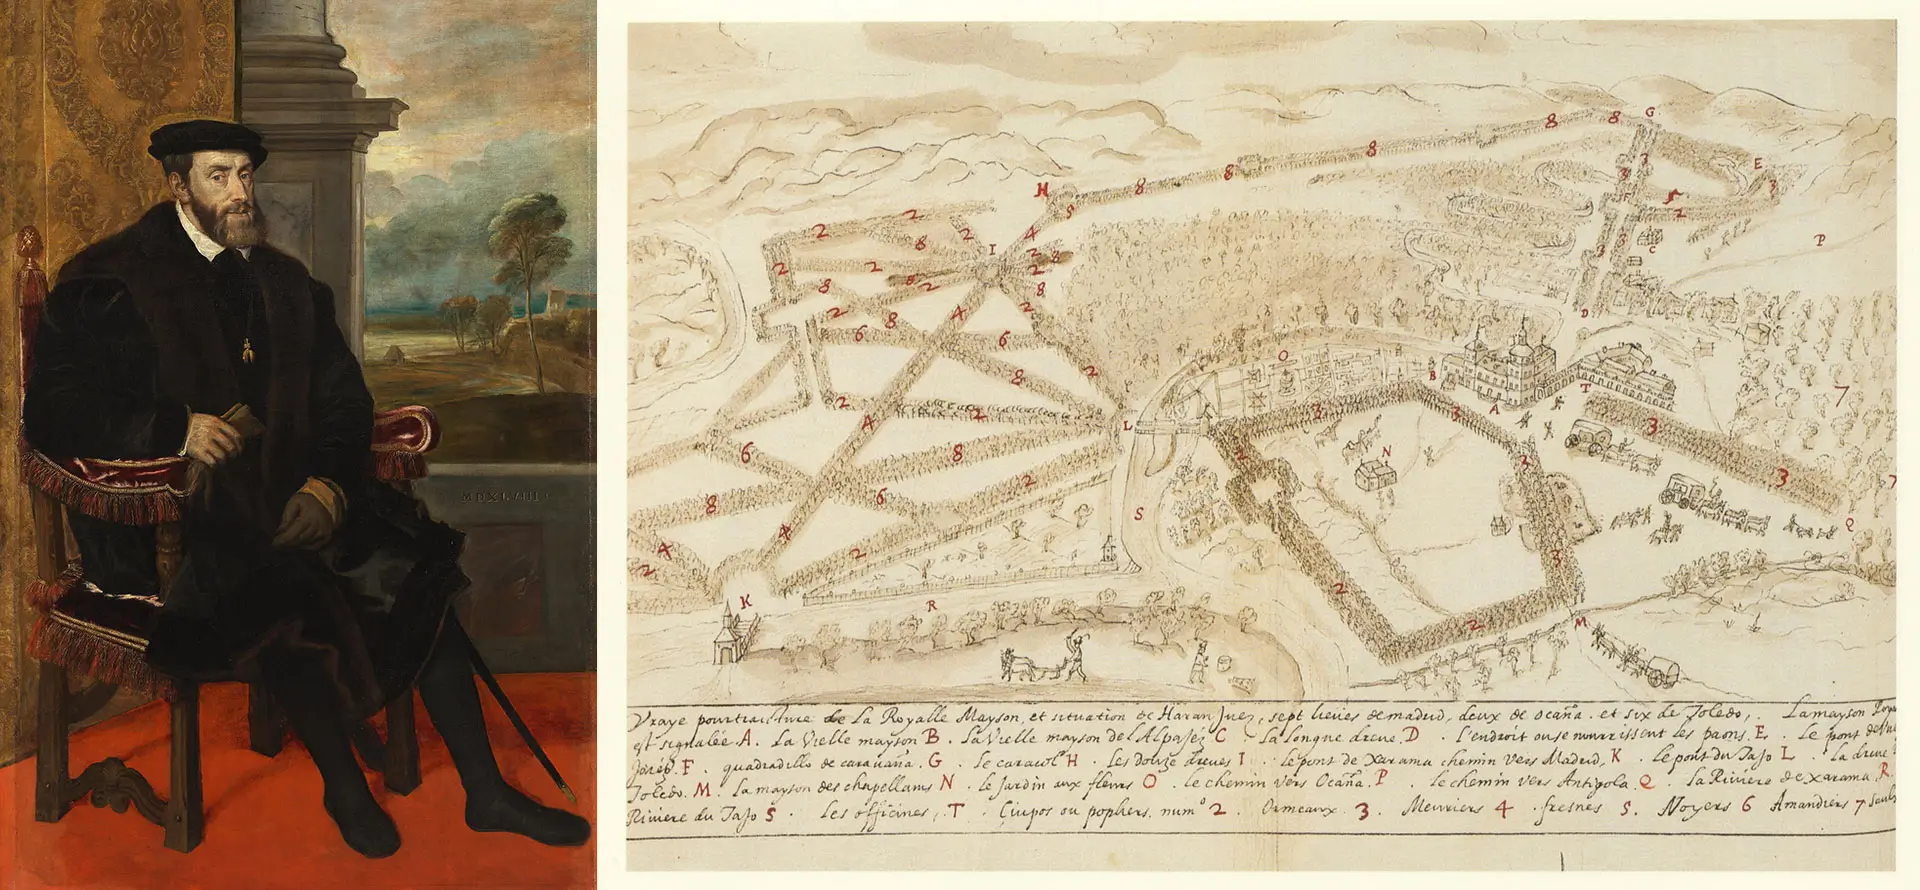 MDXLVIII
Vraye pourtraicture de la Royalle Mayson, et situation de Haran Juez, sept lieües de madrid, deux de ocaña. et six de Toledo,. La mayson
est signalée A. La Vielle mayson B. La Vielle mayson del Alpajes C. La longue dreue. D. L'endroit ou se nourrissent les paons. E. Le pont de
F. quadradillo de carauana. G. le caracol H. Les douze dreues I. le pont de Xarama chemin vers Madrid, K. Le pont du Tajo L. La dreue
Toledo. M. La mayson des chapellains N. le Jardin aux fleurs O. le chemin vers Ocaña. P. le chemin vers Antigola. Q. La Riviere de Xarama. R.
Riviere du Tajo S. Les officines,. T. Çiupos ou popliers. num° 2. Ormeaux. 3. Meuriers 4. fresnes 5. Noyers 6 Amandiers 7